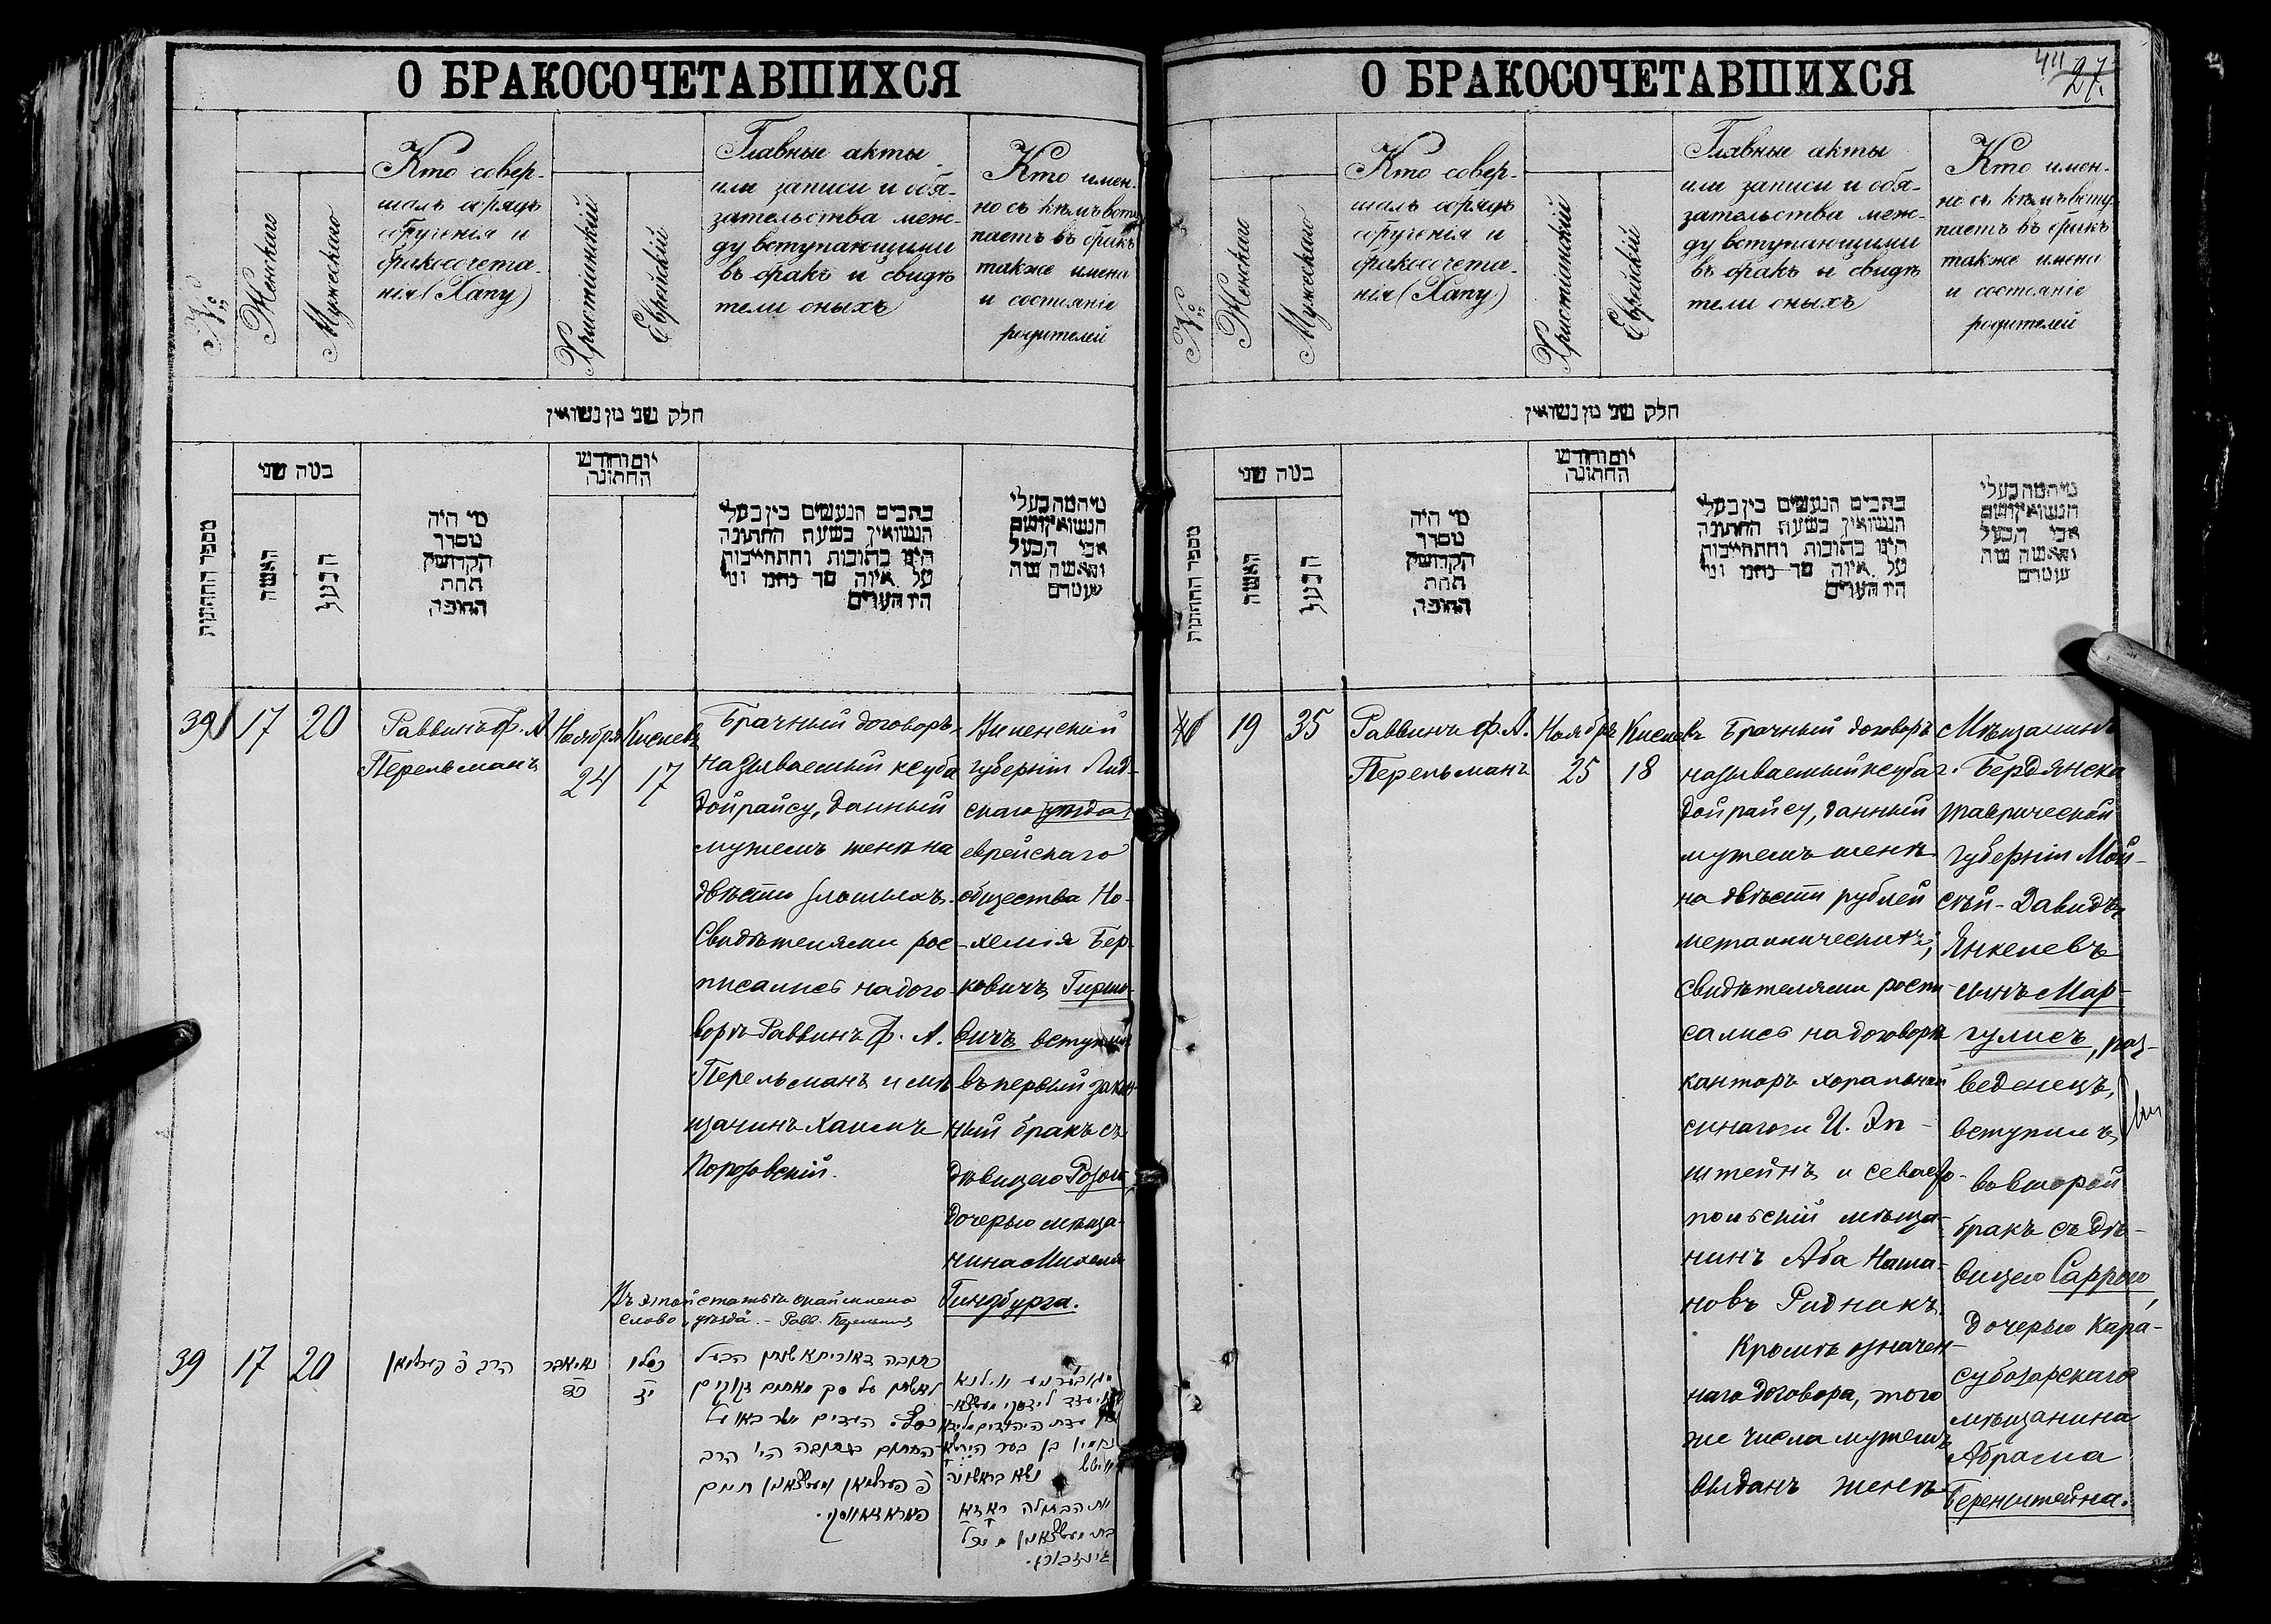 О БРАКОСОЧЕТАВШИХСЯ
№
Женскаго
Мужескаго
Кто совер-
шалъ обрядъ
обрученія и
бракосочета-
нія (Хапу)
Христіанскій
Еврейскій
Главные акты
или записи и обя-
зательства меж-
ду вступающими
въ бракъ и свидѣ
тели оныхъ
Кто имен-
но съ кѣмъ всту
паетъ въ бракъ
также имена
и состояніе
родителей
חלק שני מן נשואין
מספר החתונות
במה שני
האשה
הבעל
מי היה
מסדר
הקדושין
תחת
החופה
יום וחודש
החתונה
כתבים הנעשים בין בעלי
הנשואין בשעת החתונה
היינו כתובות והתחייבות
על איזה סך נחמו ומי
היו העדים
מי המה בעלי
הנשואין ושם
אבי הבעל
והאשה מה
שמם
39
17
20
Раввинъ Ф. А
Перельманъ
Ноября
24
Кислевъ
17
Брачный договоръ,
называемый ксуба
дойрайсу, данный
мужемъ женѣ на
двѣсти злотыхъ.
Свидѣтелями рос-
писались на дого-
ворѣ Раввинъ Ф. А.
Перельманъ и мѣ
щанинъ Хаимъ
Порозовскій.
Виленской
губерніи Лид-
скаго уѣзда
еврейскаго
общества Но-
хемія Бер-
ковичъ Гиршо-
вичъ вступилъ
въ первый закон-
ный бракъ съ
дѣвицею Розою
дочерью мѣща-
нина Михеля
Гинзбурга.
Въ этой статьѣ
слово „уѣзда“. – Рав. Перельманъ
39
17
20
הרב פ׳ פערלמאן
נאיאבר
כד
כסלו
יז
כתובה דאוריתא שנתן הבעל
לאשתו על סך מאתים זקוקים
כסף. העדים אשר באו על
החתום בכתובה היו הרב
פ׳ פערלמאן ומעשצאנין חיים
פאראזאווסקי.
נחמיה בן בער הירשא
וויטש נשא בראשונה
את הבתולה ראזא
בת מעשצאנין מיכל
גינזבורג.
О БРАКОСОЧЕТАВШИХСЯ
27.
№
Женскаго
Мужескаго
Кто совер-
шалъ обрядъ
обрученія и
бракосочета-
нія (Хапу)
Христіанскій
Еврейскій
Главные акты
или записи и обя-
зательства меж-
ду вступающими
въ бракъ и свидѣ
тели оныхъ
Кто имен-
но съ кѣмъ всту
паетъ въ бракъ
также имена
и состояніе
родителей
חלק שני מן נשואין
מספר החתונות
במה שני
האשה
הבעל
מי היה
מסדר
הקדושין
תחת
החופה
יום וחודש
החתונה
כתבים הנעשים בין בעלי
הנשואין בשעת החתונה
היינו כתובות והתחייבות
על איזה סך נחמו ומי
היו העדים
מי המה בעלי
הנשואין ושם
אבי הבעל
והאשה מה
שמם
40
19
35
Раввинъ Ф. А.
Перельманъ
Ноябрь
25
Кислевъ
18
Брачный договоръ
называемый ксуба
дойрайсу, данный
мужемъ женѣ
на двѣсти рублей
металлическихъ;
свидѣтелями роспи-
сались на договорѣ
канторъ хоральной
синагоги И. Эп-
штейнъ и севасто-
польскій мѣща-
нинъ Аба Ната-
новъ Риднакъ.
Кромѣ означен-
наго договора, того
же числа мужемъ
выданъ женѣ
Мѣщанинъ
г. Бердянска
Таврической
губерніи Мой-
сѣй-Давидъ
Янкелевъ
сынъ Мар-
гулисъ, раз-
веденецъ,
вступилъ
во второй
бракъ съ дѣ-
вицею Саррою,
дочерью Кара-
субазарскаго
мѣщанина
Абрама
Беренштейна.